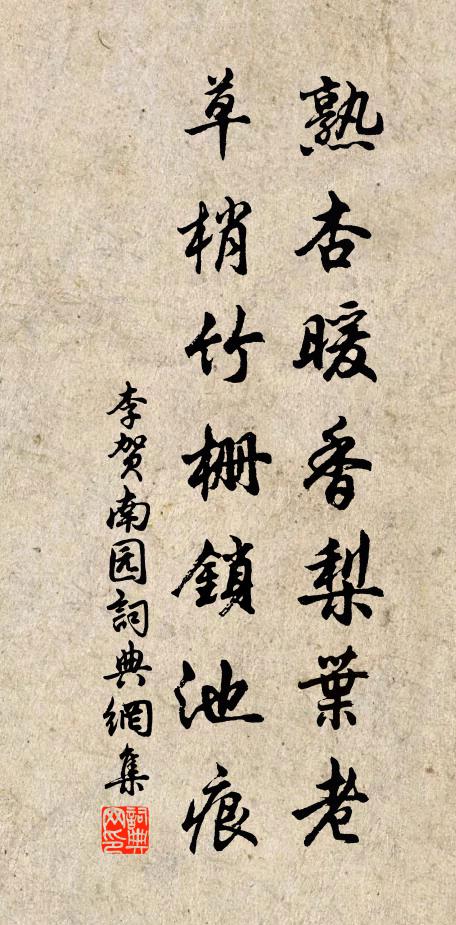 熟杏暖香梨葉老
草梢竹栅鎖池痕
李贺南园詞典網集
詞典网印